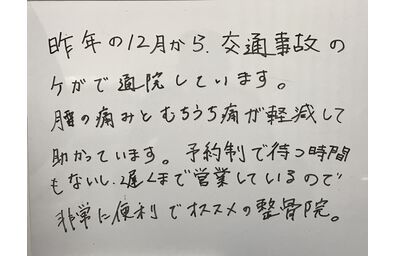 昨年の12月から、交通事故の
ケガで通院しています。
腰の痛みとむちうち痛が軽減して
助かっています。予約制で待つ時間
もないし、遅くまで営業しているので
非常に便利でオススメの整骨院。